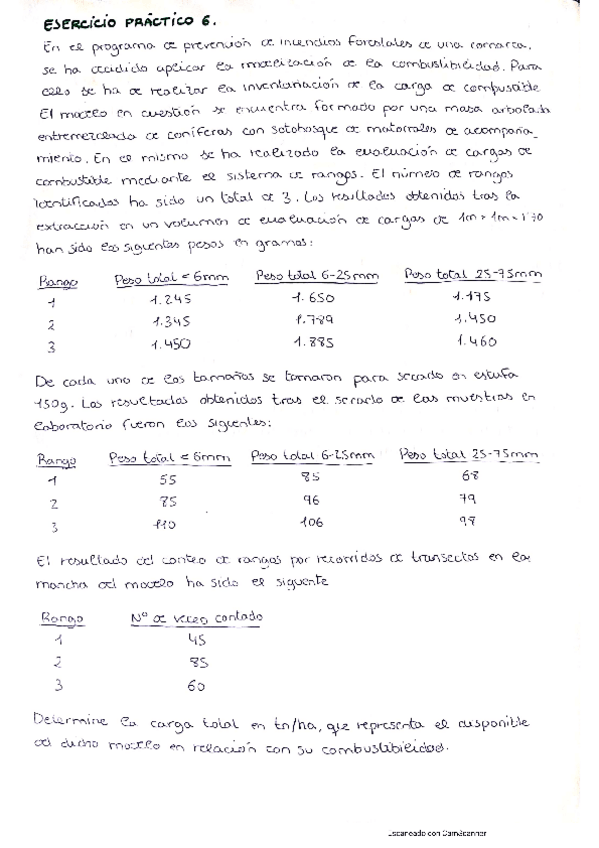 EJERCICIO PRÁCTICO 6.
En el programa de prevención de incendios forestales de una comarca,
se ha decidido aplicar la modelización de la combustibilidad. Para
ello se ha de realizar la inventariación de la carga de combustible
El modelo en cuestión se encuentra formado por una masa arbolada
entremezclada de coníferas con sotobosque de matorrales de acompaña_
miento. En el mismo se ha realizado la evaluación de cargas de
combustible mediante el sistema de rangos. El número de rangos
identificados ha sido un total de 3. Los resultados obtenidos tras la
extracción en un volumen de evaluación de cargas de 1m × 1m ×
han sido los siguientes pesos en gramos:
Rango Peso total < 6mm Peso total 6-25mm Peso total 25-75mm
1 1.245 1.650 1.175
2 1.345 1.789 1.450
3 1.450 1.885 1.460
De cada uno de los tamaños se tomaron para secado en estufa
150g. Los resultados obtenidos tras el secado de las muestras en
laboratorio fueron los siguientes:
Rango Peso total < 6mm Peso total 6-25mm Peso total 25-75mm
1 55 85 68
2 85 96 79
3 110 106 98
El resultado del conteo de rangos por recorridos de transectos en la
mancha del modelo ha sido el siguiente
Rango Nº de veces contado
1 45
2 85
3 60
Determine la carga total en tn/ha, que representa el disponible
del dicho modelo en relación con su combustibilidad.
Escaneado con CamScanner